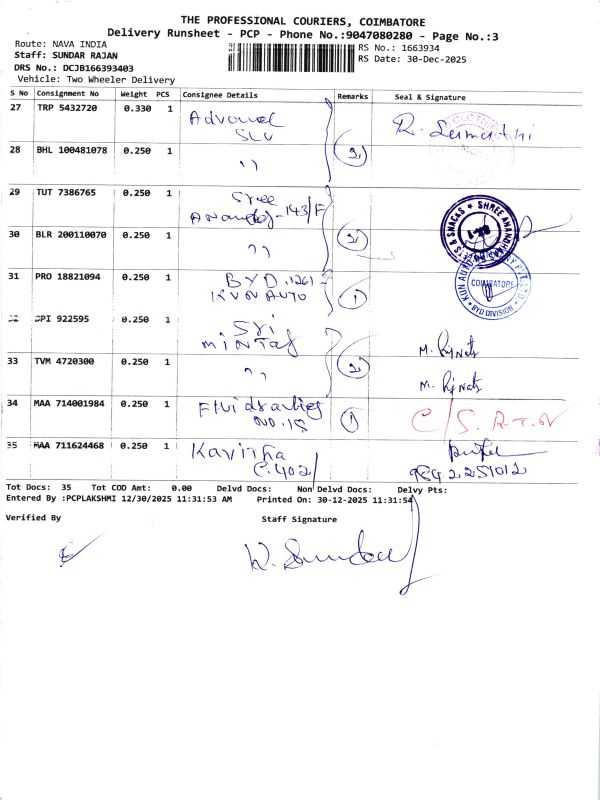 THE PROFESSIONAL COURIERS, COIMBATORE
Delivery Runsheet - PCP - Phone No.:9047080280 - Page No.:3
Route: NAVA INDIA
RS No.: 1663934
Staff: SUNDAR RAJAN
RS Date: 30-Dec-2025
DRS No.: DCJB166393403
Vehicle: Two Wheeler Delivery
S No Consignment No Weight PCS Consignee Details Remarks Seal & Signature
27 TRP 5432720 0.330 1
SLV
28 BHL 100481078 0.250 1 ,,
29 TUT 7386765 0.250 1 Sree
-143/F
30 BLR 200110070 0.250 1 ,,
SHREE ANANDHAAS
COIMBATORE
BYD DIVISION
31 PRO 18821094 0.250 1 BYD
KUN AUTO
1
922595 0.250 1 Sri
33 TVM 4720300 0.250 1 ,,
34 MAA 714001984 0.250 1
C/S. R.T.O
35 MAA 711624468 0.250 1 Kavitha
C.402
Tot Docs: 35 Tot COD Amt: 0.00 Delvd Docs: Non Delvd Docs: Delvy Pts:
Entered By :PCPLAKSHMI 12/30/2025 11:31:53 AM Printed On: 30-12-2025 11:31:54
Verified By Staff Signature